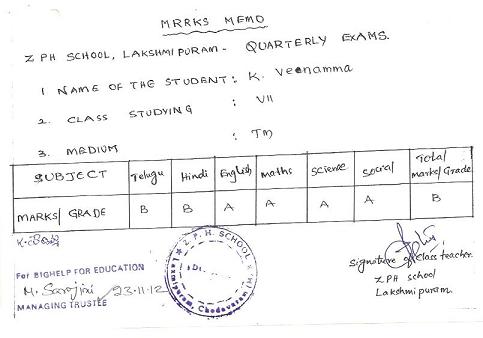 MRRKS MEMO
Z PH SCHOOL, LAKSHMIPURAM - QUARTERLY EXAMS.
1 NAME OF THE STUDENT : K. Veenamma
2. CLASS STUDYING : VII
3. MEDIUM : TM
SUBJECT Telugu Hindi English maths science social Total marks/Grade
MARKS/ GRADE B B A A A A B
For BIGHELP FOR EDUCATION
M. Sarojini 23-11-12
MANAGING TRUSTEE
Z. P. H. SCHOOL
Laxmipuram, Chodavaram
Signature of class teacher.
Z PH school
Lakshmipuram.